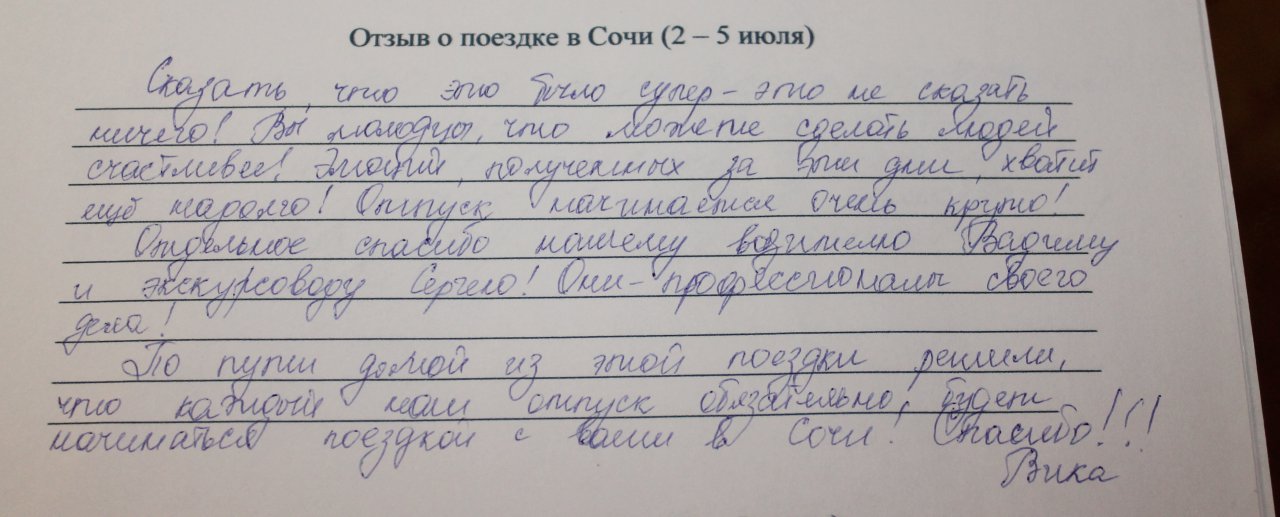 Отзыв о поездке в Сочи (2 – 5 июля)
Сказать, что это было супер – это не сказать
ничего! Вы молодцы, что можете сделать людей
счастливее! Эмоций, полученных за эти дни, хватит
ещё надолго! Отпуск начинается очень круто!
Отдельное спасибо нашему водителю Вадиму
и экскурсоводу Сергею! Они – профессионалы своего
дела!
По пути домой из этой поездки решили,
что каждый наш отпуск обязательно будет
начинаться поездкой с вами в Сочи! Спасибо!!!
Вика